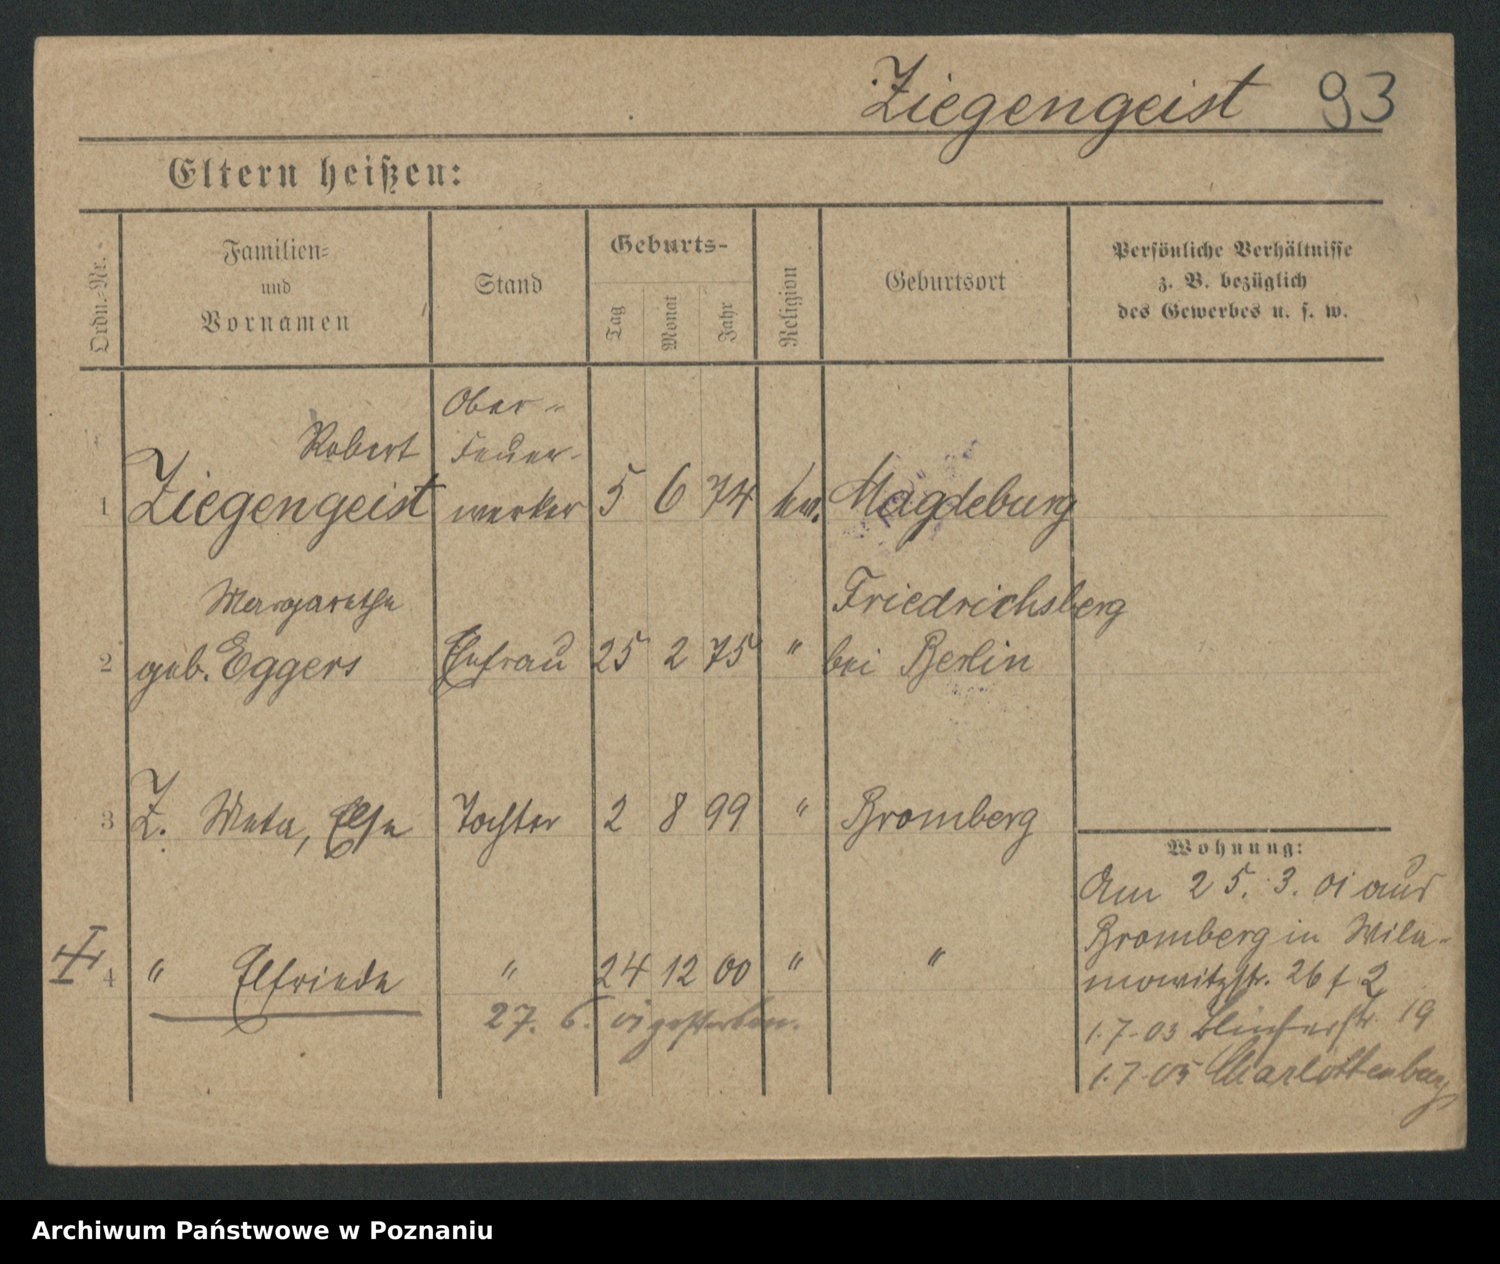 Ziegengeist 93
Eltern heißen:
Ordn.-Nr.
Familien-
und
Vornamen
Stand
Geburts-
Tag
Monat
Jahr
Religion
Geburtsort
Persönliche Verhältnisse
z. B. bezüglich
des Gewerbes u. s. w.
Robert Ober-
Feuer-
1 Ziegengeist werker 5 6 74 ev. Magdeburg
Margarethe Friedrichsberg
2 geb. Eggers Ehefrau 25 2 75 " bei Berlin
3 Z. Meta, Else Tochter 2 8 99 " Bromberg
4 " Elfriede " 24 12 00 " "
27. 6. 01 gestorben.
Wohnung:
Am 25. 3. 01 aus
Bromberg in Wila-
mowitzstr. 26 f 2
1.7.03 Blücherstr. 19
1.7.05 Charlottenburg
Archiwum Państwowe w Poznaniu